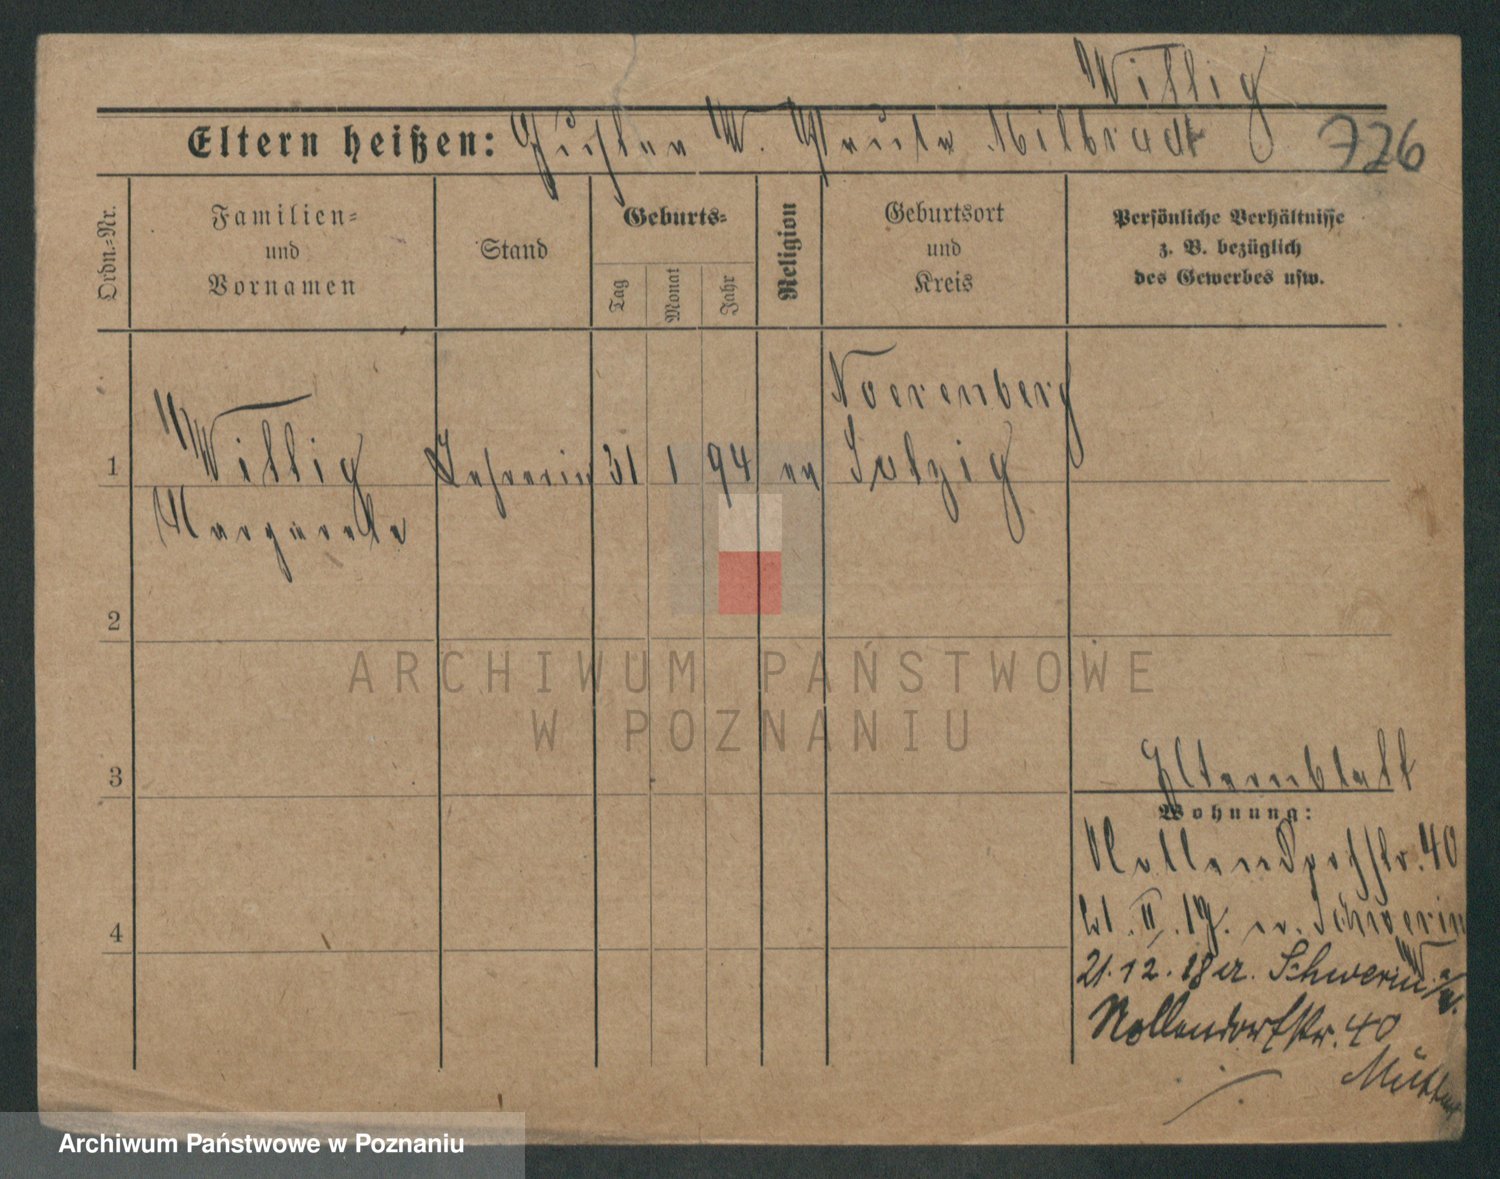 Willig
Eltern heißen: Gustav W. Paula Milbradt 726
Ordn.-Nr.
Familien-
und
Vornamen
Stand
Geburts-
Tag
Monat
Jahr
Religion
Geburtsort
und
Kreis
Persönliche Verhältnisse
z. B. bezüglich
des Gewerbes usw.
Noerenberg
1 Willig Lehrerin 31 1 94 ev
Margarete
2
ARCHIWUM PAŃSTWOWE
W POZNANIU
3
Elternblatt
Wohnung:
Nollendorfstr. 40
4
II. 19. Schwerin
21.12.18 Schwerin a/W.
Nollendorfstr. 40
Archiwum Państwowe w Poznaniu